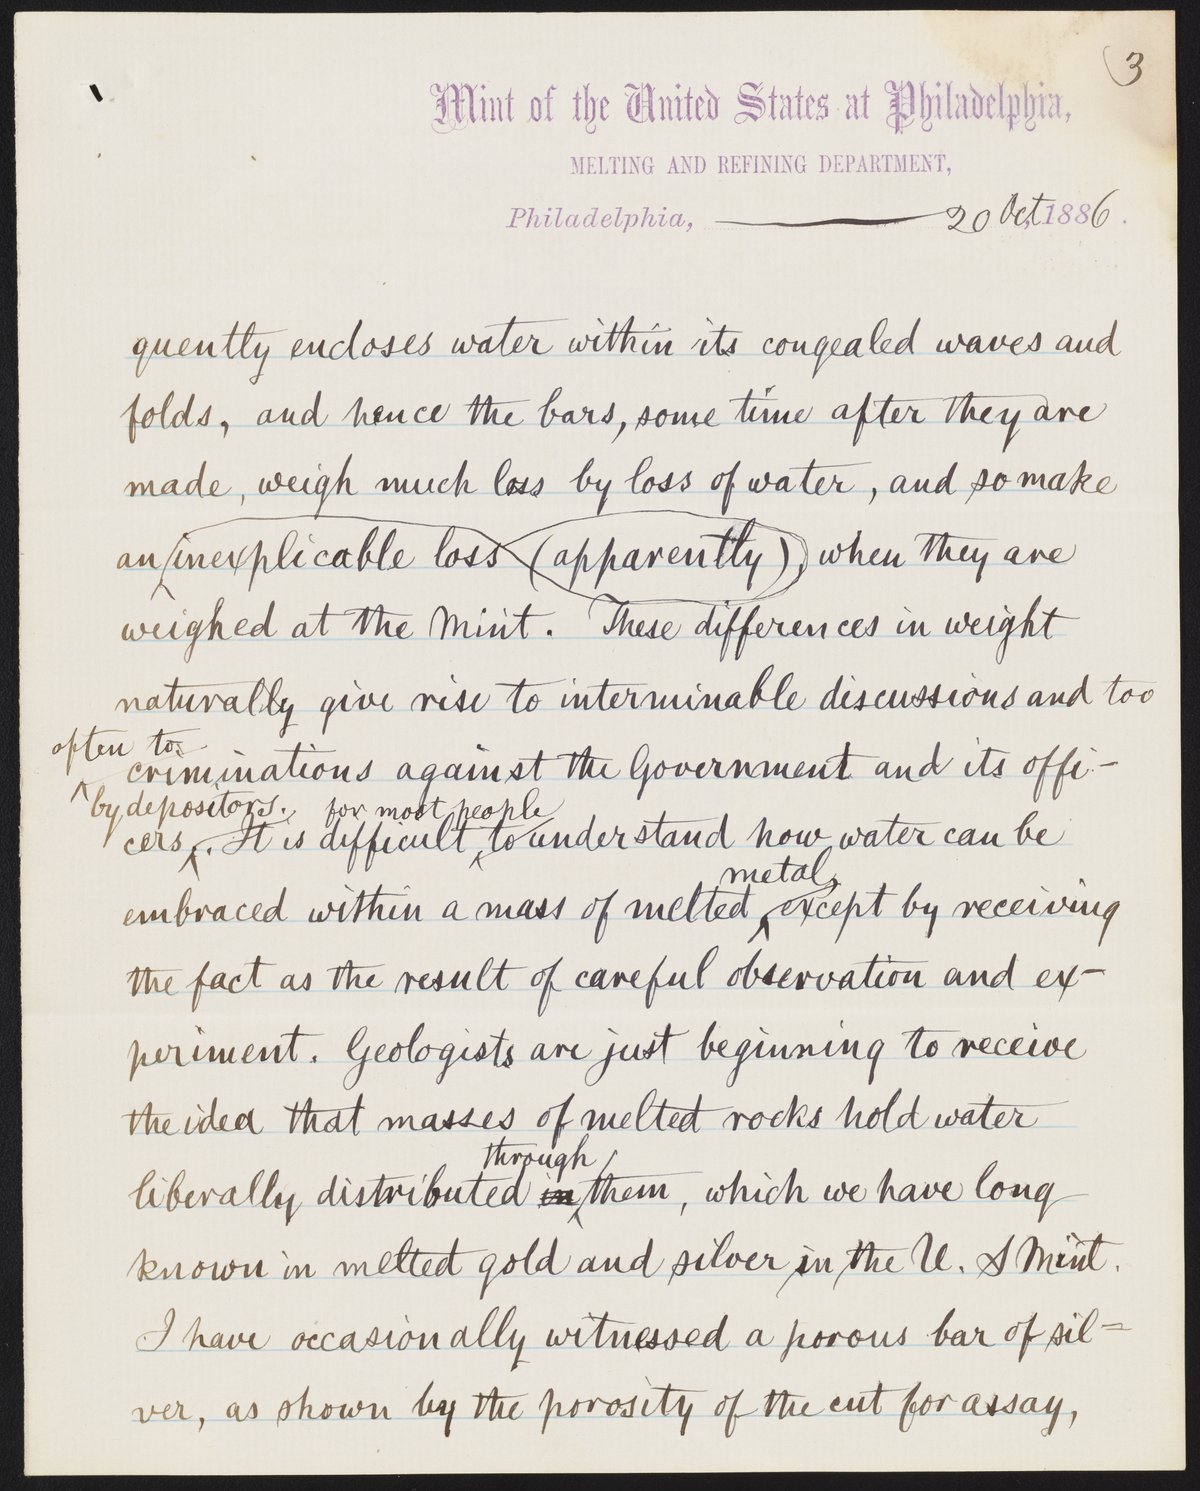 3
Mint of the United States at Philadelphia,
MELTING AND REFINING DEPARTMENT,
Philadelphia, 20 Oct, 1886.
quently encloses water within its congealed waves and
folds, and hence the bars, some time after they are
made, weigh much less by loss of water, and so make
an inexplicable loss (apparently), when they are
weighed at the Mint. These differences in weight
naturally give rise to interminable discussions and too
often to
criminations against the Government and its offi-
by depositors. for most people
cers. It is difficult, to understand how water can be
metal,
embraced within a mass of melted except by receiving
the fact as the result of careful observation and ex-
periment. Geologists are just beginning to receive
the idea that masses of melted rocks hold water
through
liberally distributed in them, which we have long
known in melted gold and silver in the U. S Mint.
I have occasionally witnessed a porous bar of sil=
ver, as shown by the porosity of the cut for assay,